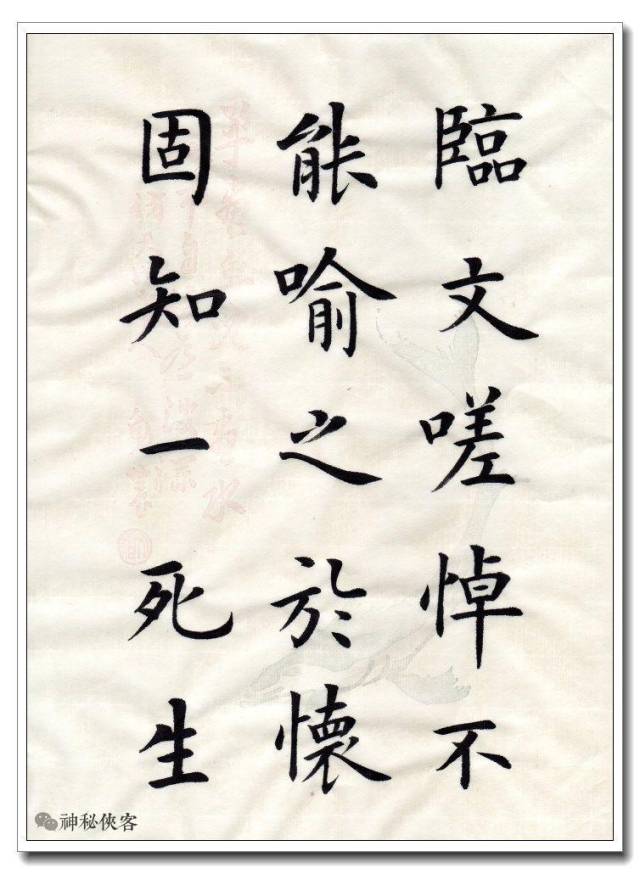 臨文嗟悼不
能喻之於懷
固知一死生
神秘俠客